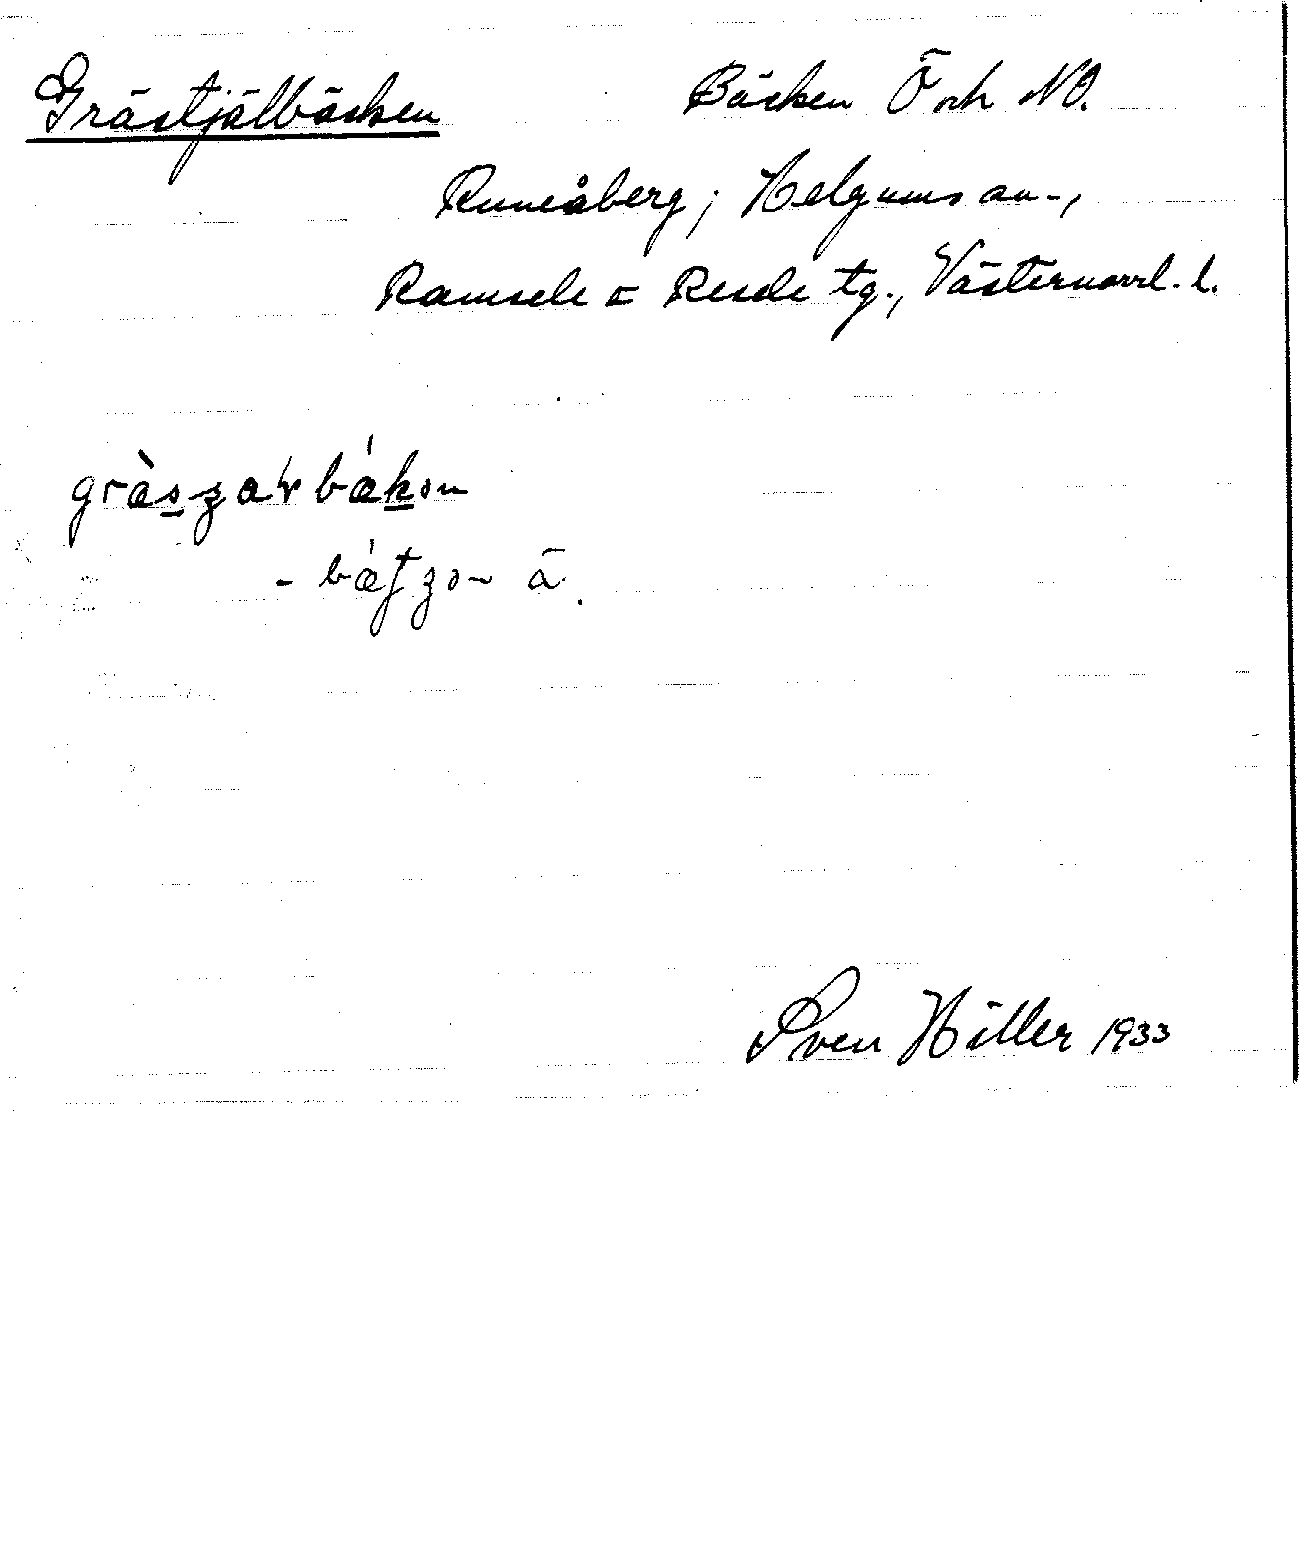 Grästjälbäcken Bäcken Ö och NO.
Runeåberg; Helgums sn-,
Ramsele o Resele tg., Västernorrl. l.
bäkən
ā.
Sven Hiller 1933